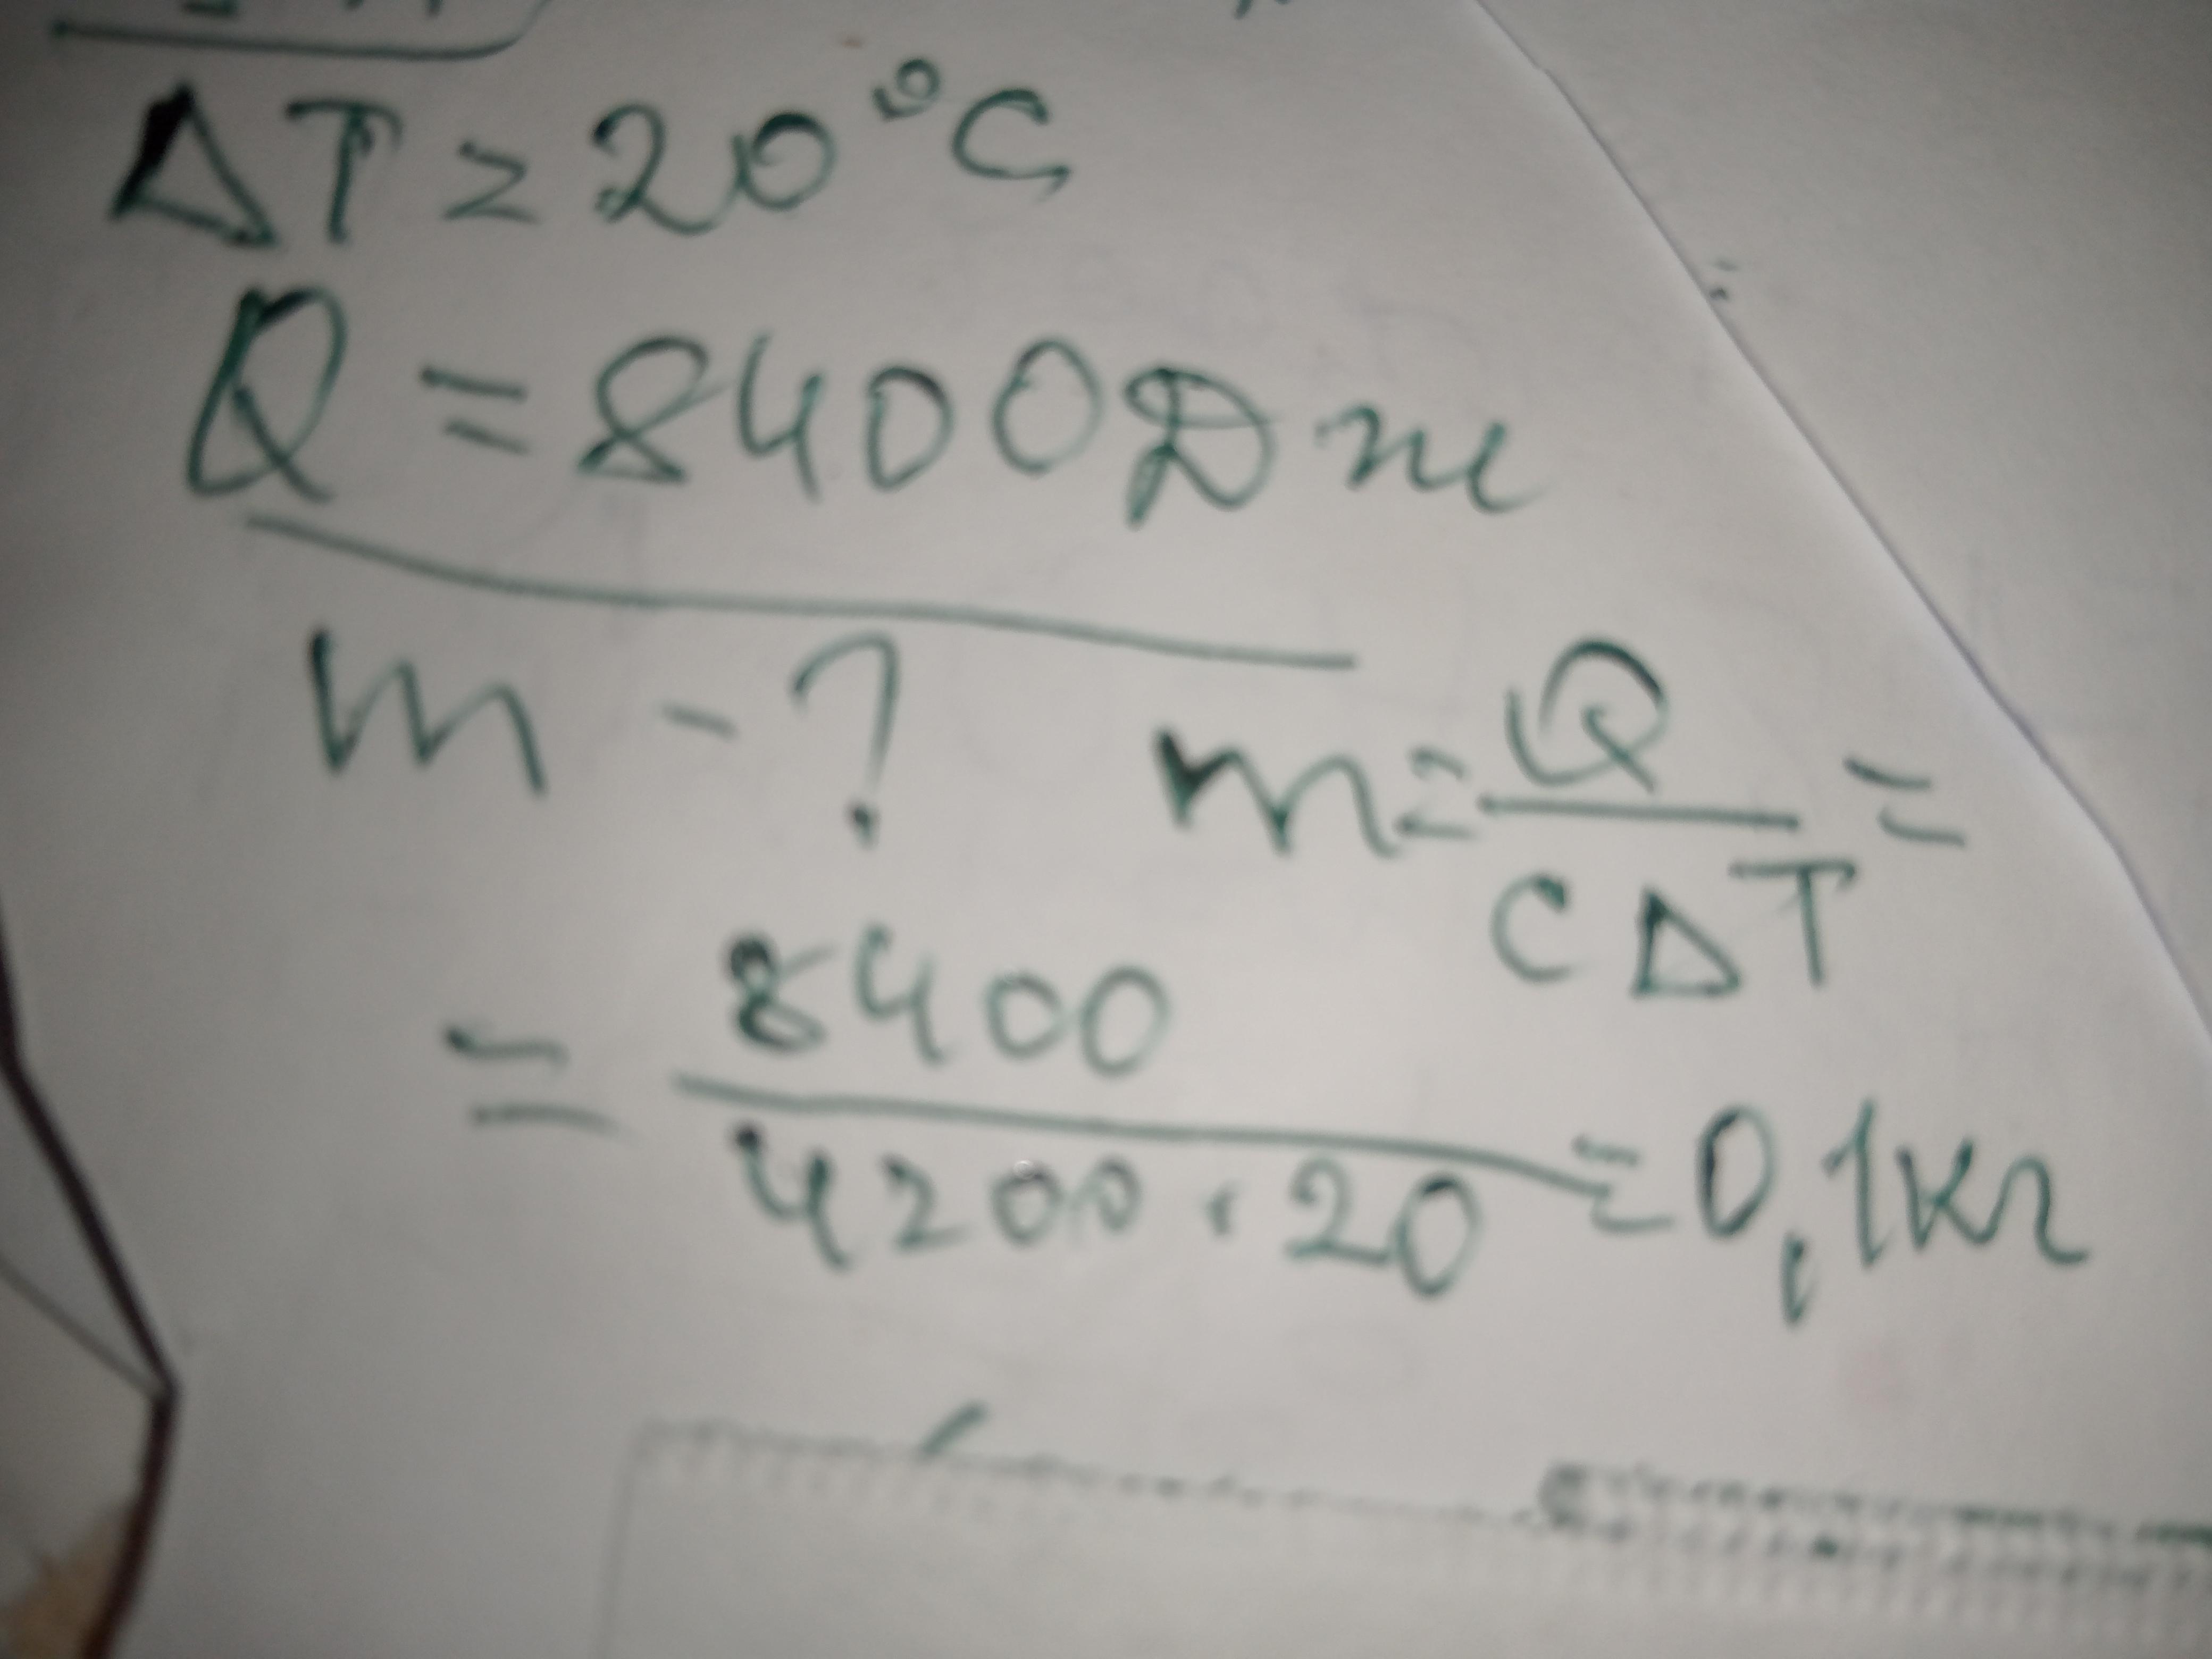 ΔT = 20°C
Q = 8400Дж
m - ?
m = Q / CΔT =
= 8400 / 4200 · 20 = 0,1кг